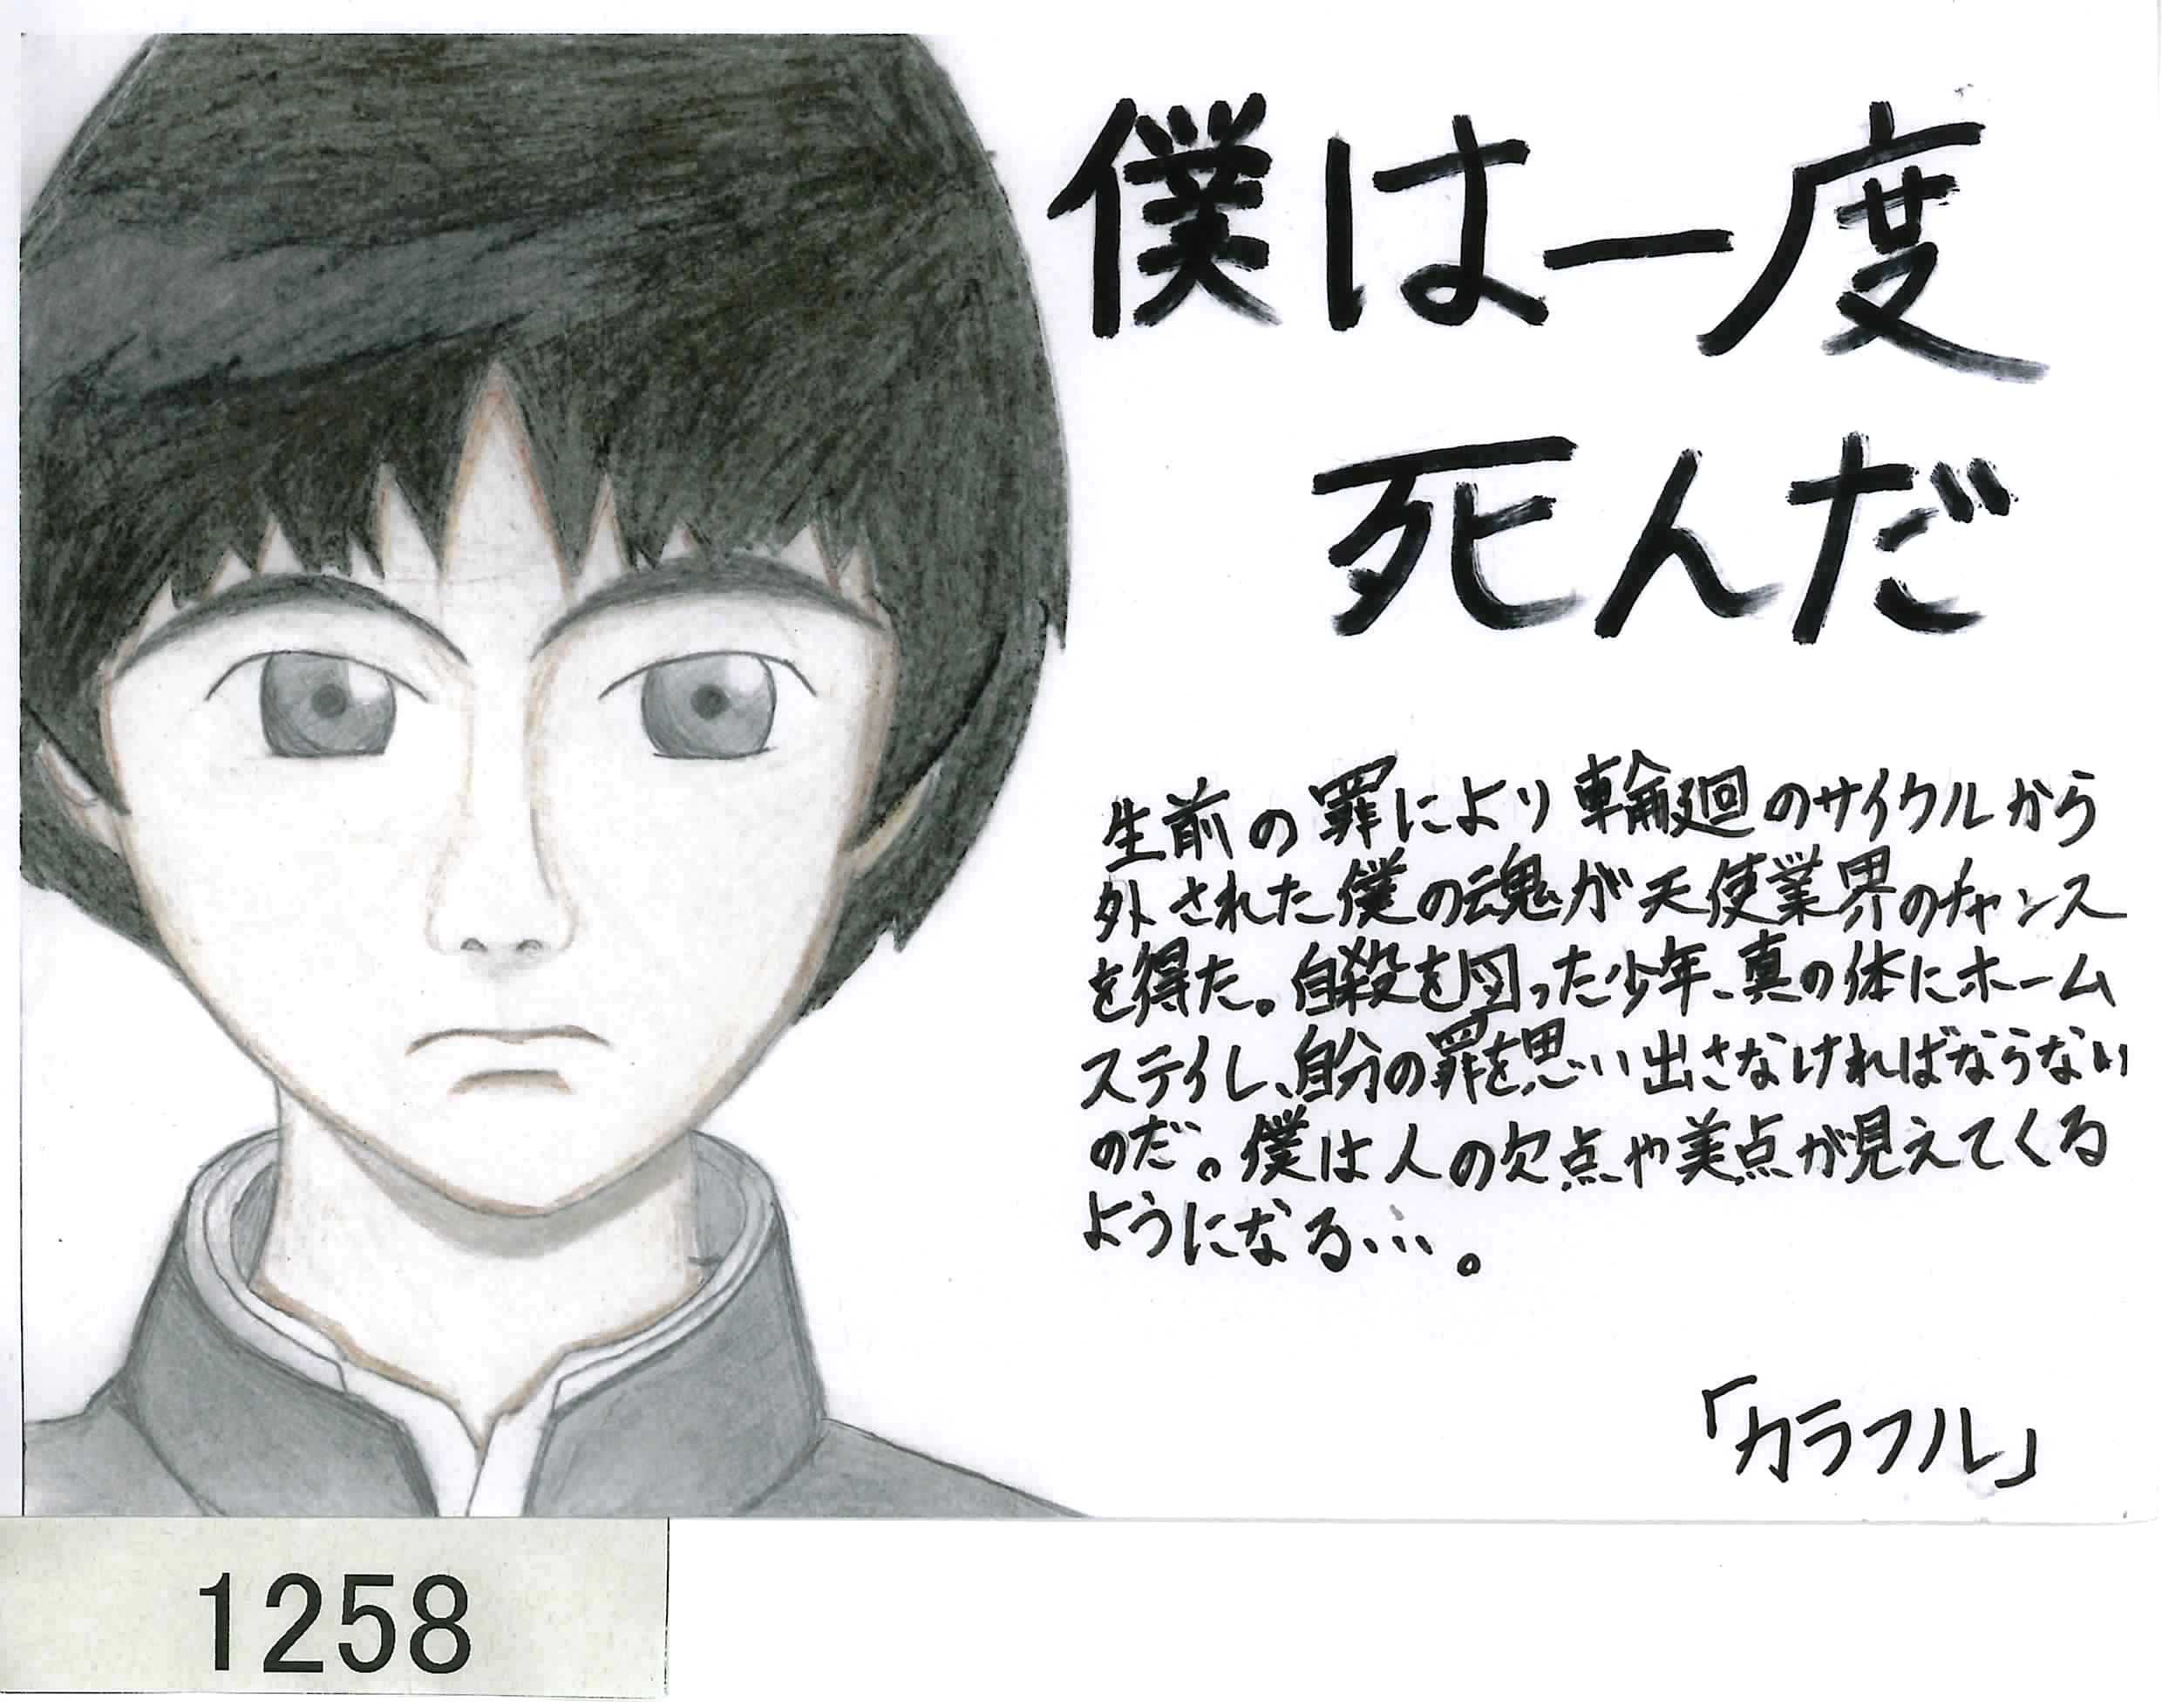 僕は一度
死んだ
生前の罪により輪廻のサイクルから
外された僕の魂が天使業界のチャンス
を得た。自殺を図った少年、真の体にホーム
ステイし、自分の罪を思い出さなければならない
のだ。僕は人の欠点や美点が見えてくる
ようになる…。
「カラフル」
1258